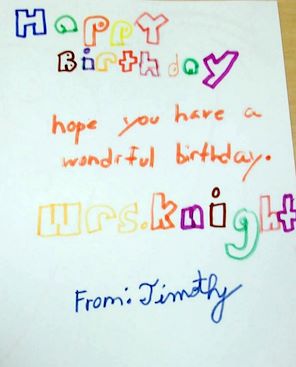 Happy
Birthday
hope you have a
wondrful birthday.
Mrs. knight
From: Timothy